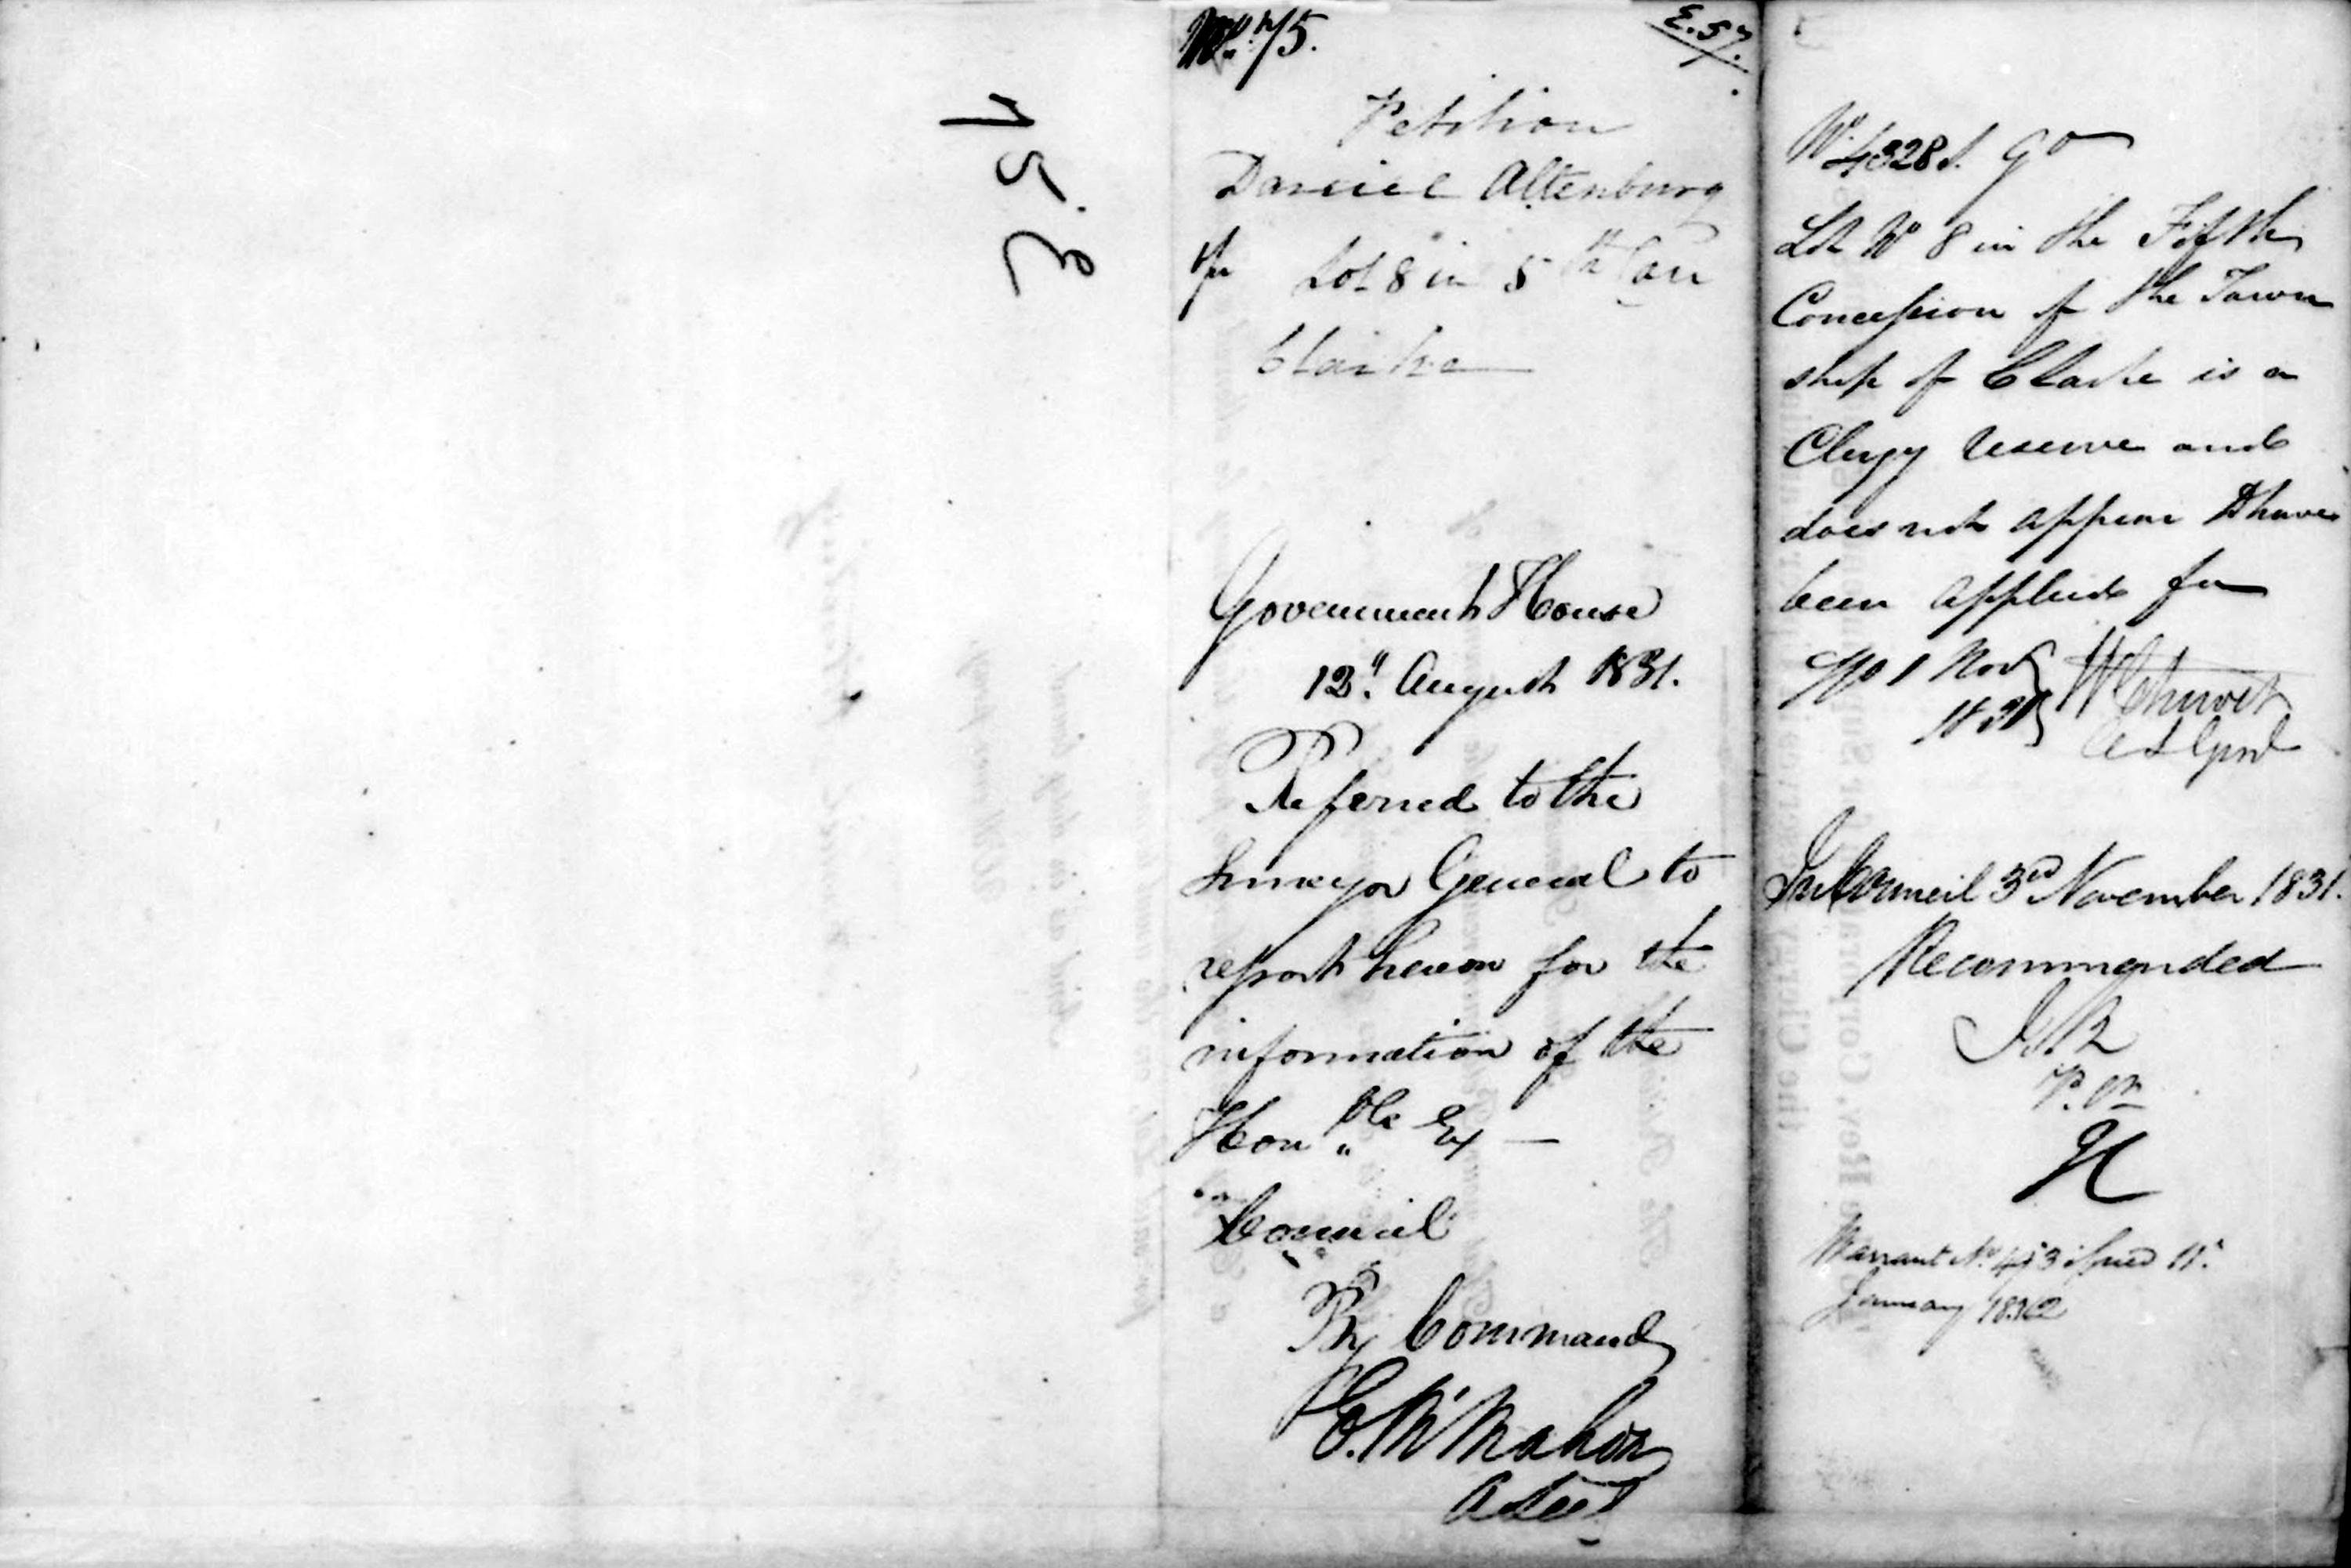 E. 57.
Petition
Daniel Altenburg
for Lot 8 in 5th Con
Clarke
Government House
12th August 1831.
Referred to the
Surveyor General to
report hereon for the
information of the
Honble Ex
Council
By Command
E. McMahon
No 4328
Lot No 8 in the Fifth
Concession of the Town
ship of Clarke is a
Clergy reserve and
does not appear to have
been applied for
1 Nov
1831
In Council 3rd November 1831.
Recommended
Warrant No issued 11th
January 1832